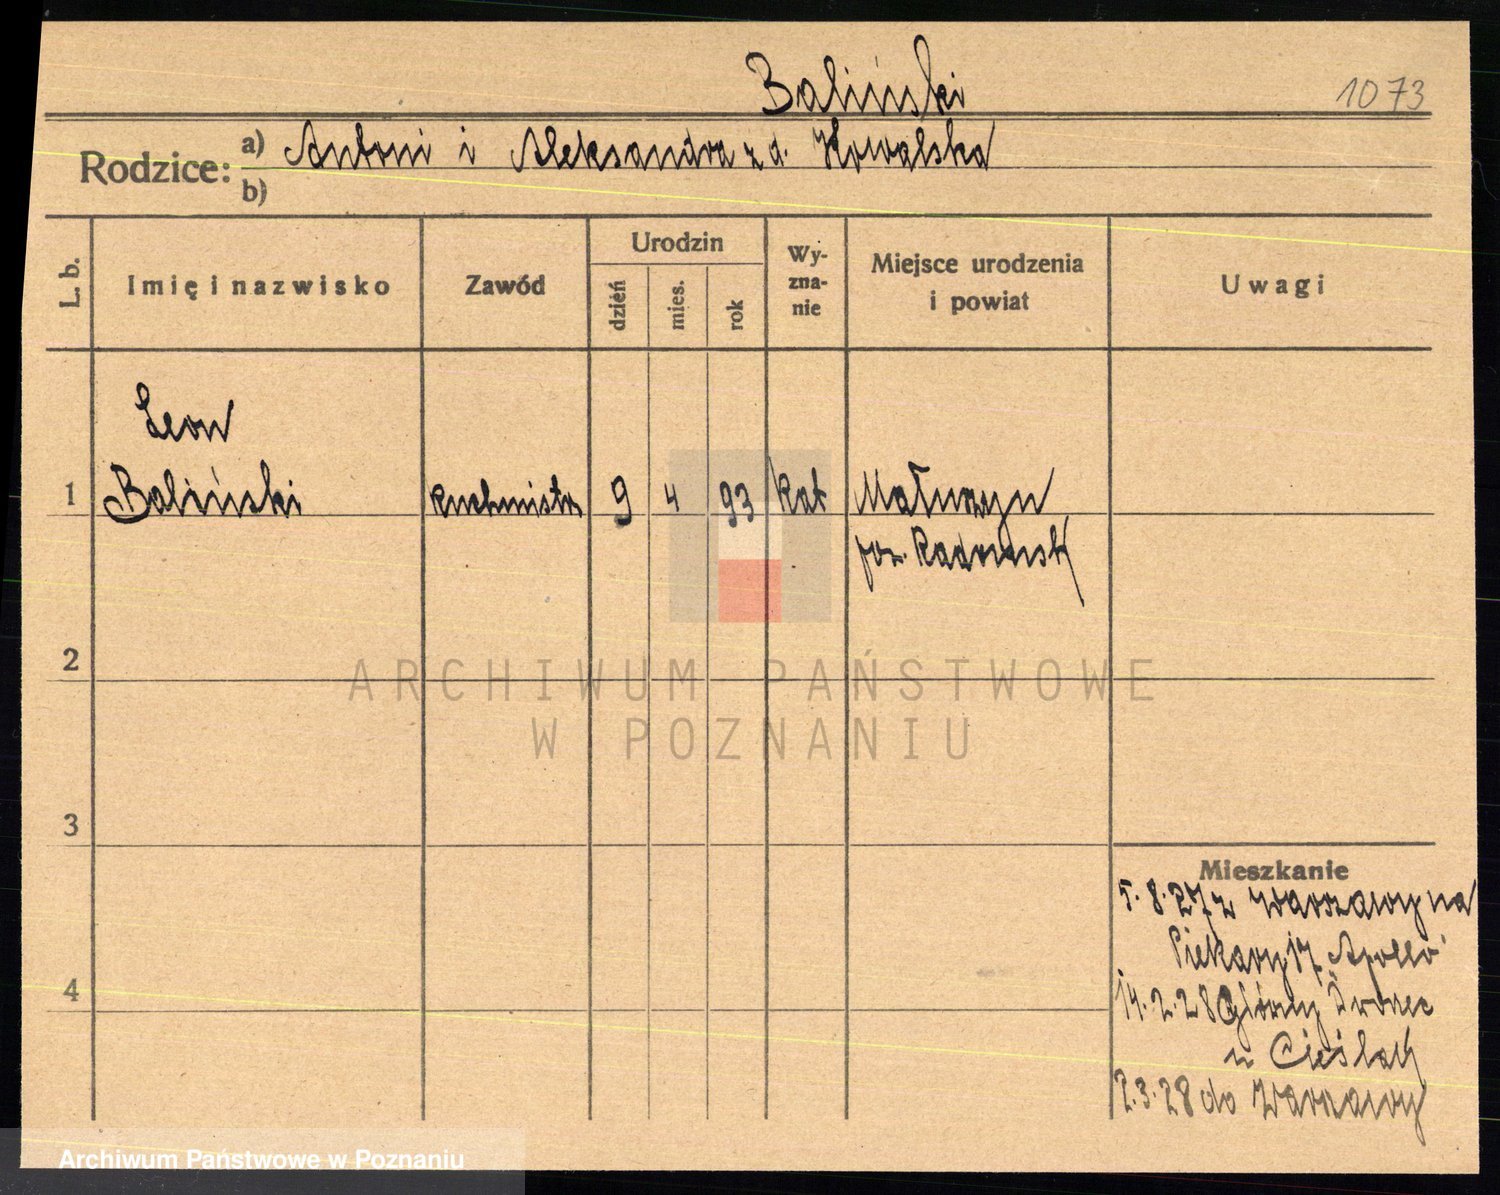 Baliński
1073
Rodzice:
a) Antoni i Aleksandra z d. Kowalska
b)
L. b.
Imię i nazwisko
Zawód
Urodzin
dzień
mies.
rok
Wy-
zna-
nie
Miejsce urodzenia
i powiat
Uwagi
Leon
1 Baliński kuchmistrz 9 4 93 kat
pow. Radomsk
2
ARCHIWUM PAŃSTWOWE
W POZNANIU
3
4
Mieszkanie
5.8.27 z Warszawy na
Piekary 17 "Apollo"
14.2.28 Główny Dworzec
u Cieślak
2.3.28 do Warszawy
Archiwum Państwowe w Poznaniu